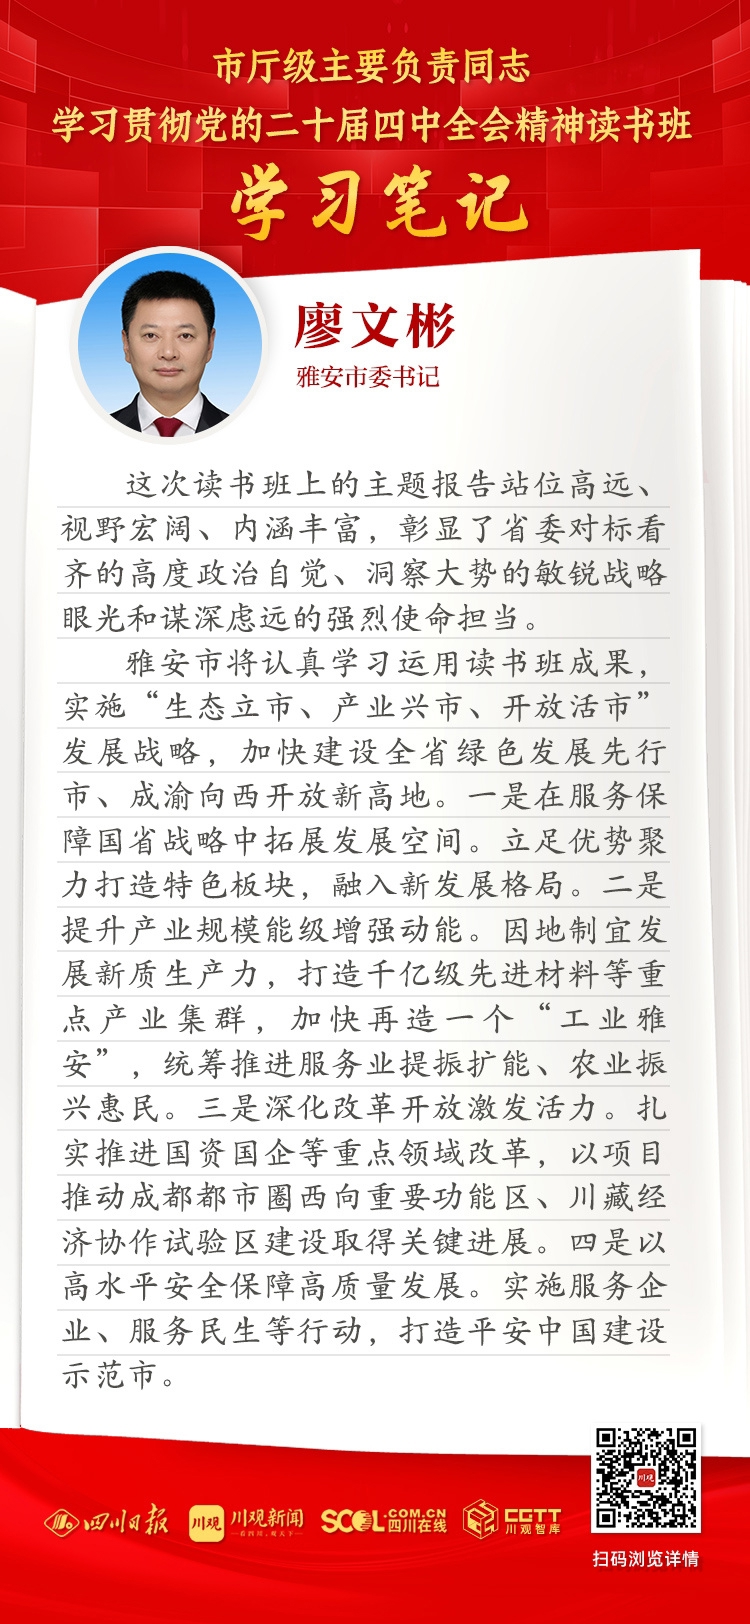 市厅级主要负责同志
学习贯彻党的二十届四中全会精神读书班
学习笔记
廖文彬
雅安市委书记
这次读书班上的主题报告站位高远、
视野宏阔、内涵丰富，彰显了省委对标看
齐的高度政治自觉、洞察大势的敏锐战略
眼光和谋深虑远的强烈使命担当。
雅安市将认真学习运用读书班成果，
实施“生态立市、产业兴市、开放活市”
发展战略，加快建设全省绿色发展先行
市、成渝向西开放新高地。一是在服务保
障国省战略中拓展发展空间。立足优势聚
力打造特色板块，融入新发展格局。二是
提升产业规模能级增强动能。因地制宜发
展新质生产力，打造千亿级先进材料等重
点产业集群，加快再造一个“工业雅
安”，统筹推进服务业提振扩能、农业振
兴惠民。三是深化改革开放激发活力。扎
实推进国资国企等重点领域改革，以项目
推动成都都市圈西向重要功能区、川藏经
济协作试验区建设取得关键进展。四是以
高水平安全保障高质量发展。实施服务企
业、服务民生等行动，打造平安中国建设
示范市。
四川日报
川观
川观新闻
看四川，观天下
SCOL.COM.CN
四川在线
CGTT
川观智库
川观
扫码浏览详情